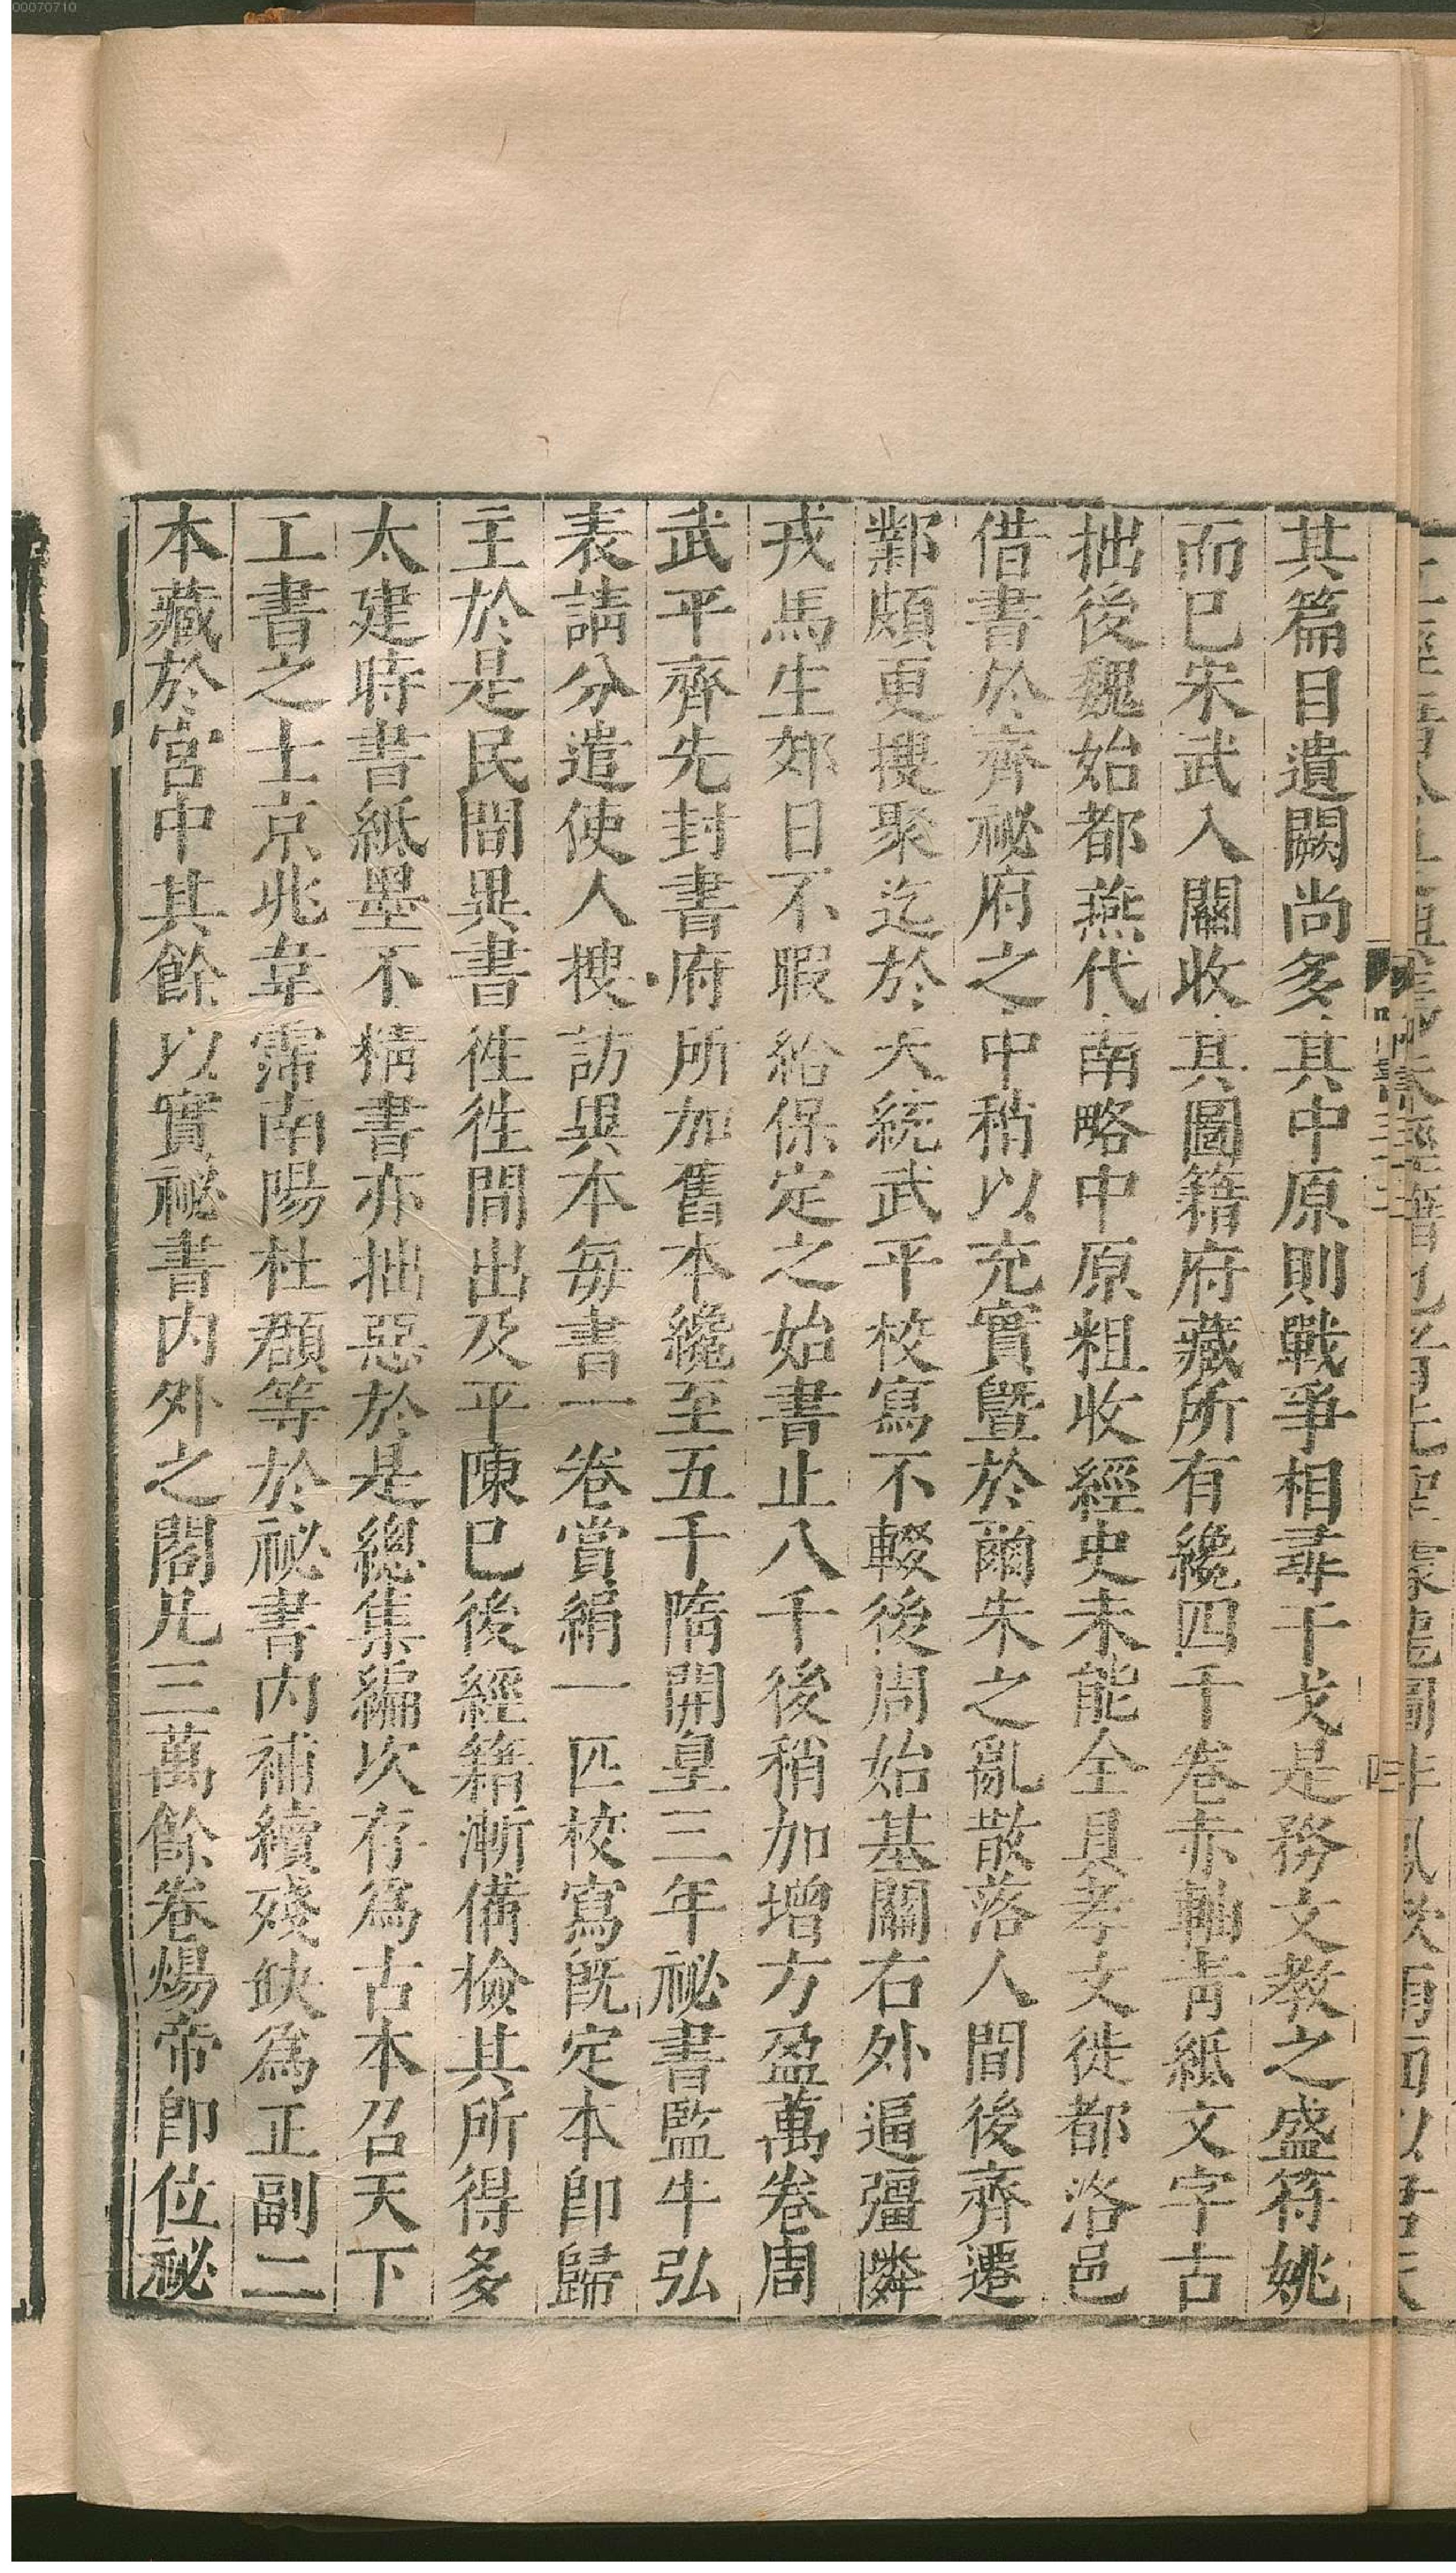 00070710
其篇目遺闕尚多其中原則戰爭相尋干戈是務文教之盛符姚
而已宋武入關收其圖籍府藏所有纔四千卷赤軸青紙文字古
拙後魏始都燕代南略中原粗收經史未能全具孝文徙都洛邑
借書於齊祕府之中稍以充實暨於爾朱之亂散落人間後齊遷
鄴頗更搜聚迄於天統武平校寫不輟後周始基關右外逼彊隣
戎馬生郊日不暇給保定之始書止八千後稍加增方盈萬卷周
武平齊先封書府所加舊本纔至五千隋開皇三年祕書監牛弘
表請分遣使人搜訪異本每書一卷賞絹一匹校寫既定本即歸
主於是民間異書徃徃間出及平陳已後經籍漸備檢其所得多
太建時書紙墨不精書亦拙惡於是總集編次存為古本召天下
工書之士京兆韋霈南陽杜頵等於祕書内補續殘缺為正副二
本藏於宮中其餘以實祕書内外之閣凡三萬餘卷煬帝即位祕